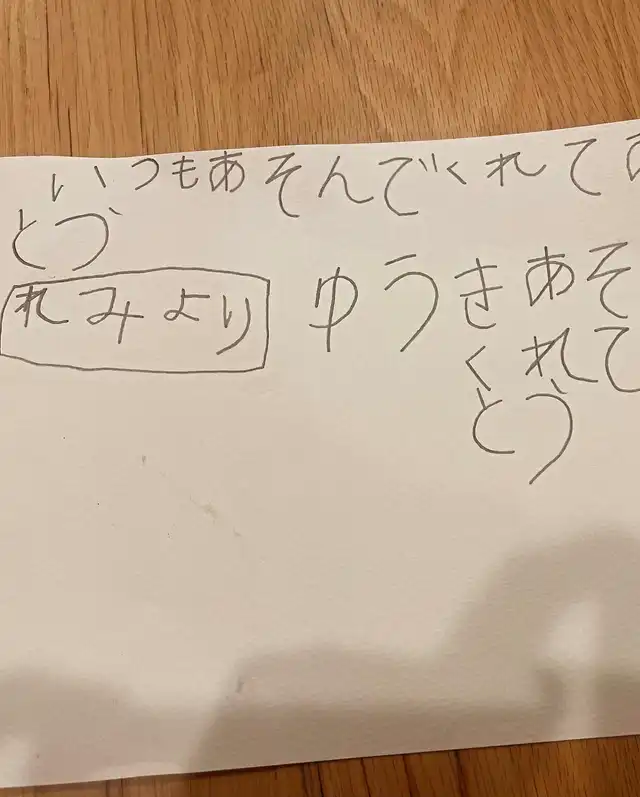 いつもあそんでくれて
とう
れみより
ゆうきあそ
くれて
とう